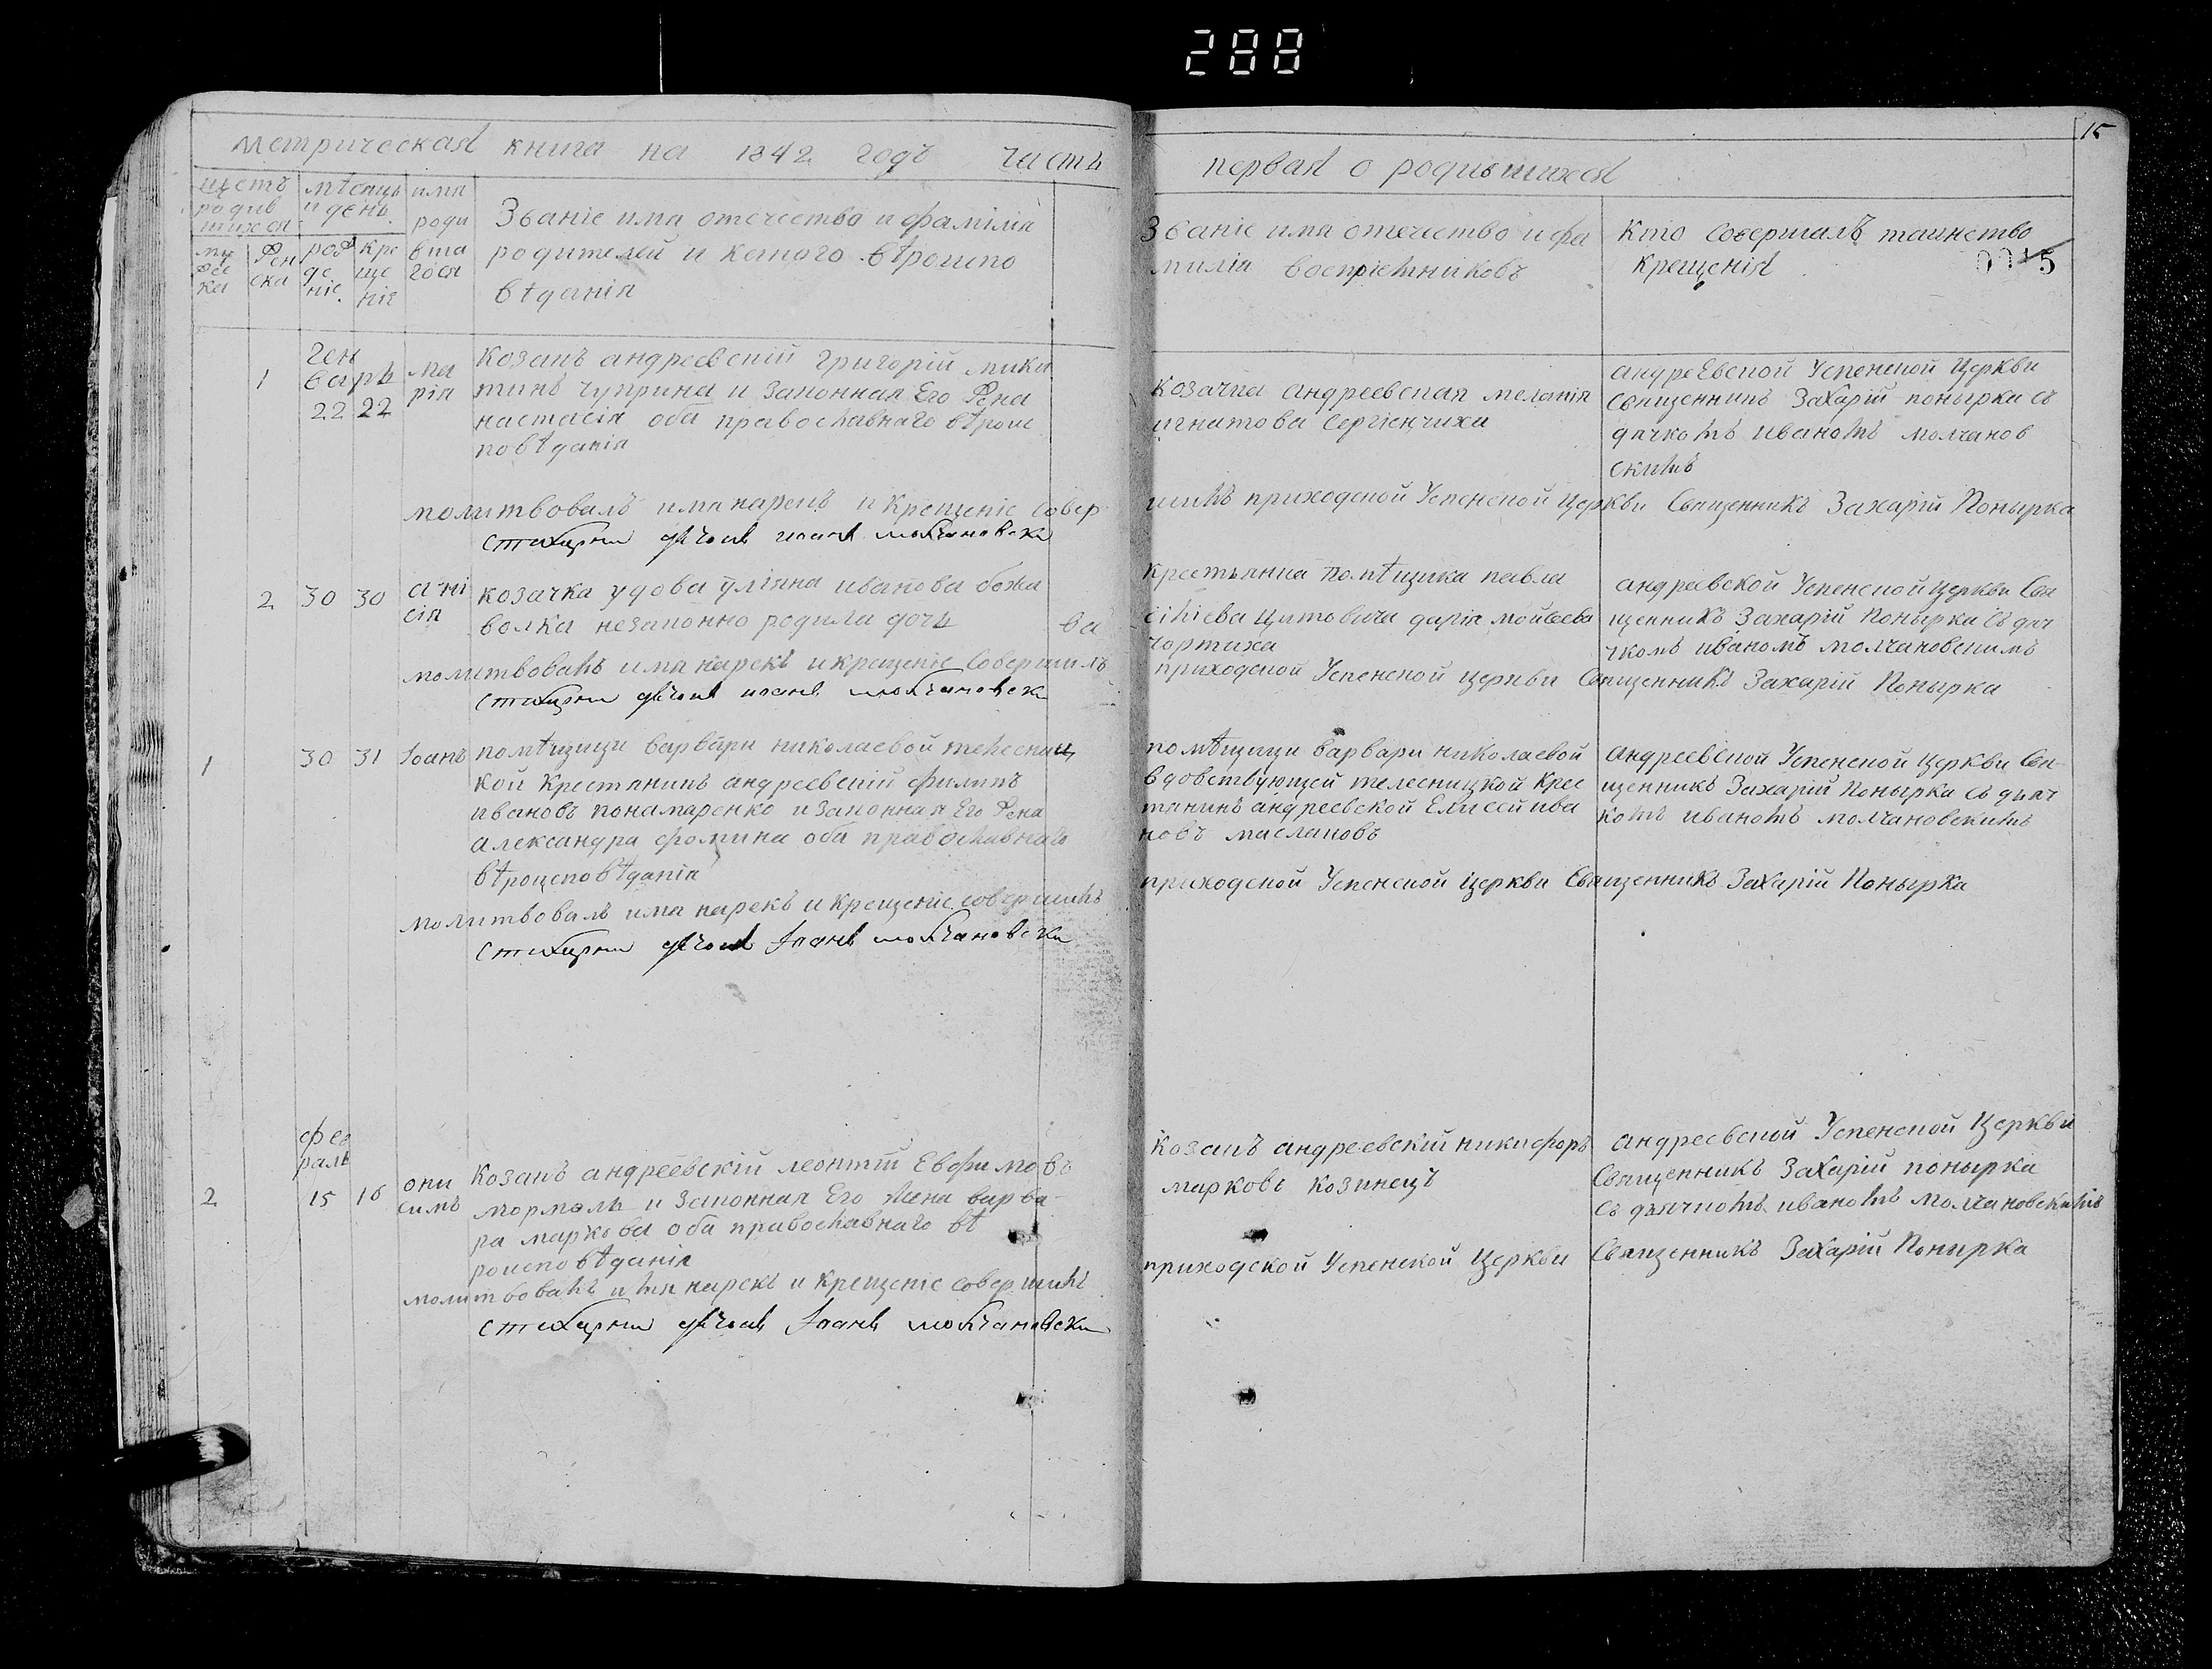 288
15
метрическая книга на 1842 годъ часть
первая о родившихся
щетъ родив шихся
мѣсяцъ и день
имя роди вша гося
му жес ка
жен ска
рож де ніе
кре ще ніе
Званіе имя отечество и фамілія
родителей и котого вѣроиспо
вѣданія
Званіе имя отечество и фа
милія воспріемниковъ
Кто совершалъ таинство
крещенія
0015
1
ген
варь
22 22
ма
рія
козакъ андреевскій григорій мики
тинъ чуприна и законная Его жена
настасія оба православнаго вѣроис
повѣданія
козачка андреевская меланія
игнатова Сергіенчиха
андреевской Успенской Церкви
Священникъ Захарій понырка съ
дячкомъ иваномъ молчанов
скимъ
молитвовалъ имя нарекъ и крещеніе Совер
шилъ приходской Успенской Церкви Священникъ Захарій Понырка
стихарни дячокъ иоанъ молчановски
2 30 30
ани
сія
козачка удова уліяна иванова божа
волка незаконно родила дочь
ва
крестьянка помѣщика павла
Цитовича дарія мойсеева
чортиха
андреевской Успенской Церкви Свя
щенникъ Захарій Понырка съ дяч
чкомъ иваномъ молчановскимъ
молитвовалъ имя нарекъ и крещеніе Совершилъ
приходской Успенской церкви Священникъ Захарій Понырка
стихарни дячокъ иоанъ молчановски
1 30 31 Іоанъ
помѣщици варвари николаевой телесниц
кой крестянинъ андреевскій филипъ
ивановъ понамаренко и законная Его жена
александра фомина оба православнаго
вѣроисповѣданія
помѣщици варвари николаевой
вдовствующей телесницкой крес
тянинъ андреевской Елисей ива
новъ маслаковъ
андреевской Успенской Церкви Свя
щенникъ Захарій Понырка съ дьяч
комъ иваномъ молчановскимъ
молитвовалъ имя нарекъ и крещеніе совершилъ
приходской Успенской церкви Священникъ Захарій Понырка
стихарни дячокъ Іоанъ молчановски
фев
раль
2 15 16
они
симъ
козакъ андреевскій леонтій Евфимовъ
морналь и законная Его жена варва
ра маркова оба православнаго вѣ
роисповѣданія
козакъ андреевскій никифоръ
марковъ козинецъ
андреевской Успенской Церкви
Священникъ Захарій понырка
съ дьячкомъ иваномъ молчановскимъ
молитвовалъ имя нарекъ и крещеніе совершилъ
приходской Успенской Церкви Священникъ Захарій Понырка
стихарни дячокъ Іоанъ молчановски